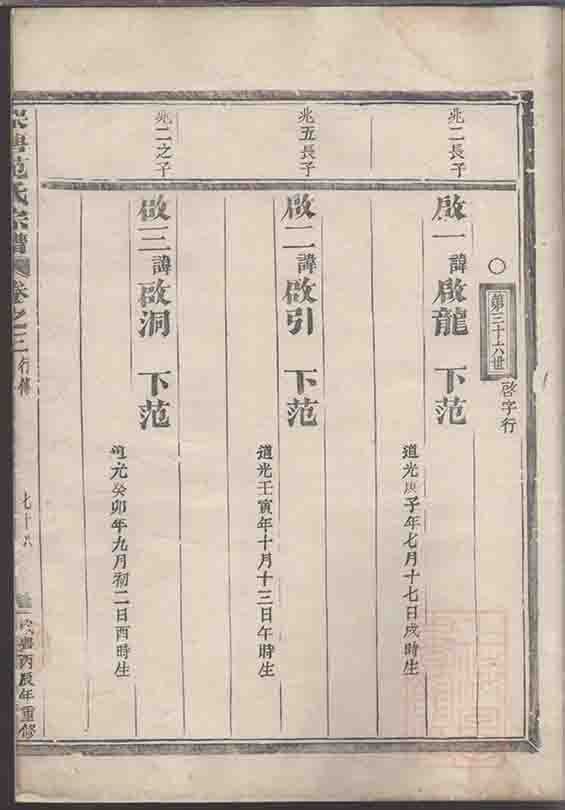 第三十六世
啓字行
兆二長子
啟一諱啟龍 下范
道光庚子年七月十七日戌時生
兆五長子
啟二諱啟引 下范
道光壬寅年十月十三日午時生
兆二之子
啟三諱啟洞 下范
道光癸卯年九月初二日酉時生
范氏宗譜
卷之三
行傳
七十六
丙辰年重修